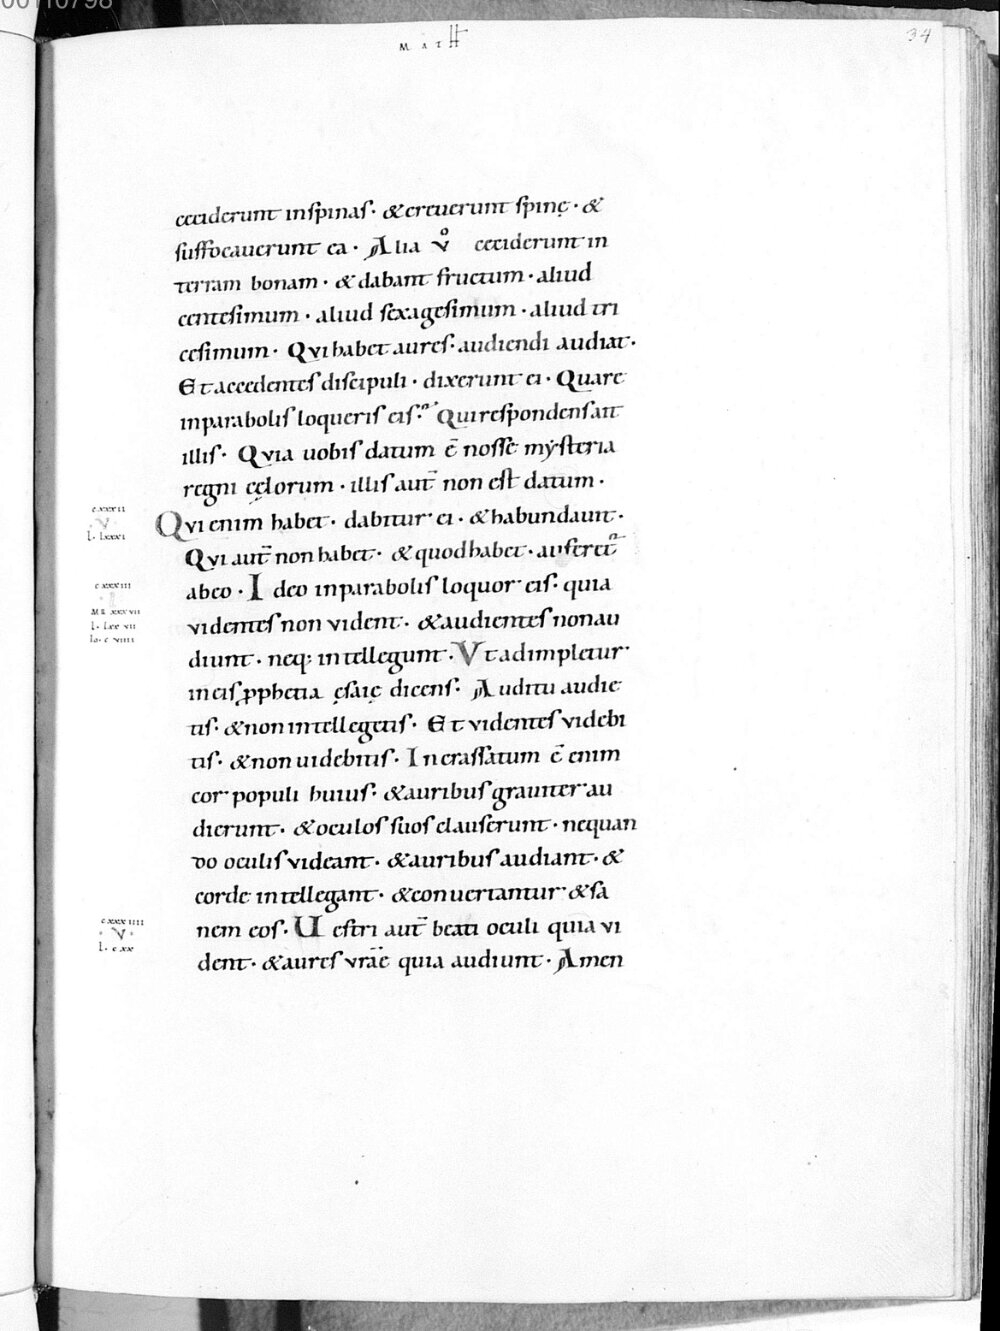 00110798
MATH
34
ceciderunt inspinas· & creuerunt spinę· &
suffocauerunt ea· Alia vº ceciderunt in
terram bonam· & dabant fructum· aliud
centesimum· aliud sexagesimum· aliud tri
cesimum· Qvi habet aures· audiendi audiat·
Et accedentes discipuli· dixerunt ei· Quare
inparabolis loqueris eis· Qui respondens ait
illis· Qvia uobis datum ē nosse mẏsteria
regni cęlorum· illis aut̄ non est datum·
cxxxii
Qvi enim habet· dabitur ei· & habundauit·
·V·
L· lxxxi
Qvi aut̄ non habet· & quod habet· auferet᷑
cxxxiii
abeo· Ideo inparabolis loquor eis· quia
MR xxxvii
L· lxxvii
Io· c viiii
videntes non vident· & audientes non au
diunt· neq; intellegunt· Vt adimpletur
in eis ꝓphetia ęsaię dicens· Auditu audie
tis· & non intellegetis· Et videntes videbi
tis· & non uidebitis· Incrassatum ē enim
cor populi huius· & auribus grauiter au
dierunt· & oculos suos clauserunt· nequan
do oculis videant· & auribus audiant· &
corde intellegant· & conuertantur & sa
cxxxiiii
nem eos· Uestri aut̄ beati oculi quia vi
·V·
L· cxx
dent· & aures vr̄ae quia audiunt· Amen